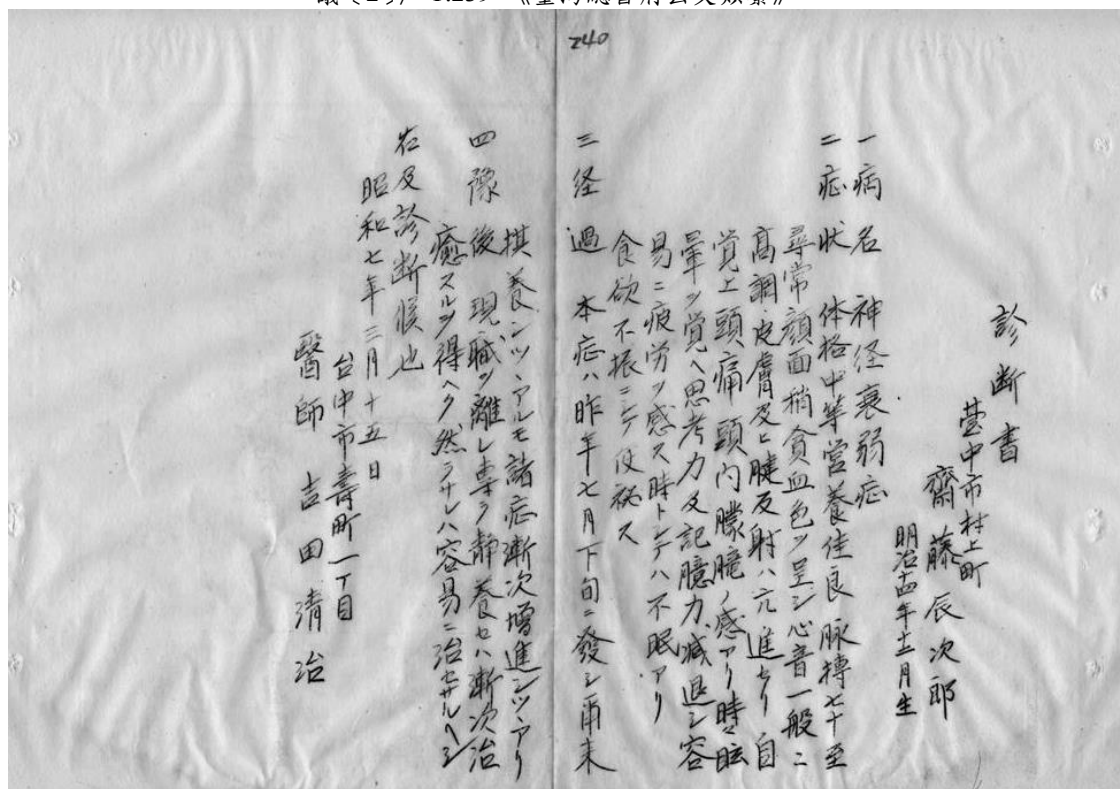 240
診断書
臺中市村上町
齋藤辰次郎
明治十四年十二月生
一病名 神経衰弱症
二症状 体格中等営養佳良脉搏七十至
尋常顔面稍貧血色ヲ呈シ心音一般ニ
高調皮膚及ヒ腱反射ハ亢進セリ自
覚上頭痛頭内朦朧ノ感アリ時々眩
暈ヲ覚ヘ思考力及記臆力減退シ容
易ニ疲労ヲ感ス時トシテハ不眠アリ
食欲不振ニシテ便秘ス
三経過 本症ハ昨年七月下旬ニ發シ爾来
摂養シツヽアルモ諸症漸次増進シツヽアリ
四豫後 現職ヲ離レ専ラ静養セハ漸次治
癒スルヲ得ヘク然ラサレハ容易ニ治セサルヘシ
右及診断候也
昭和七年三月十五日
台中市壽町一丁目
醫師 吉田清治